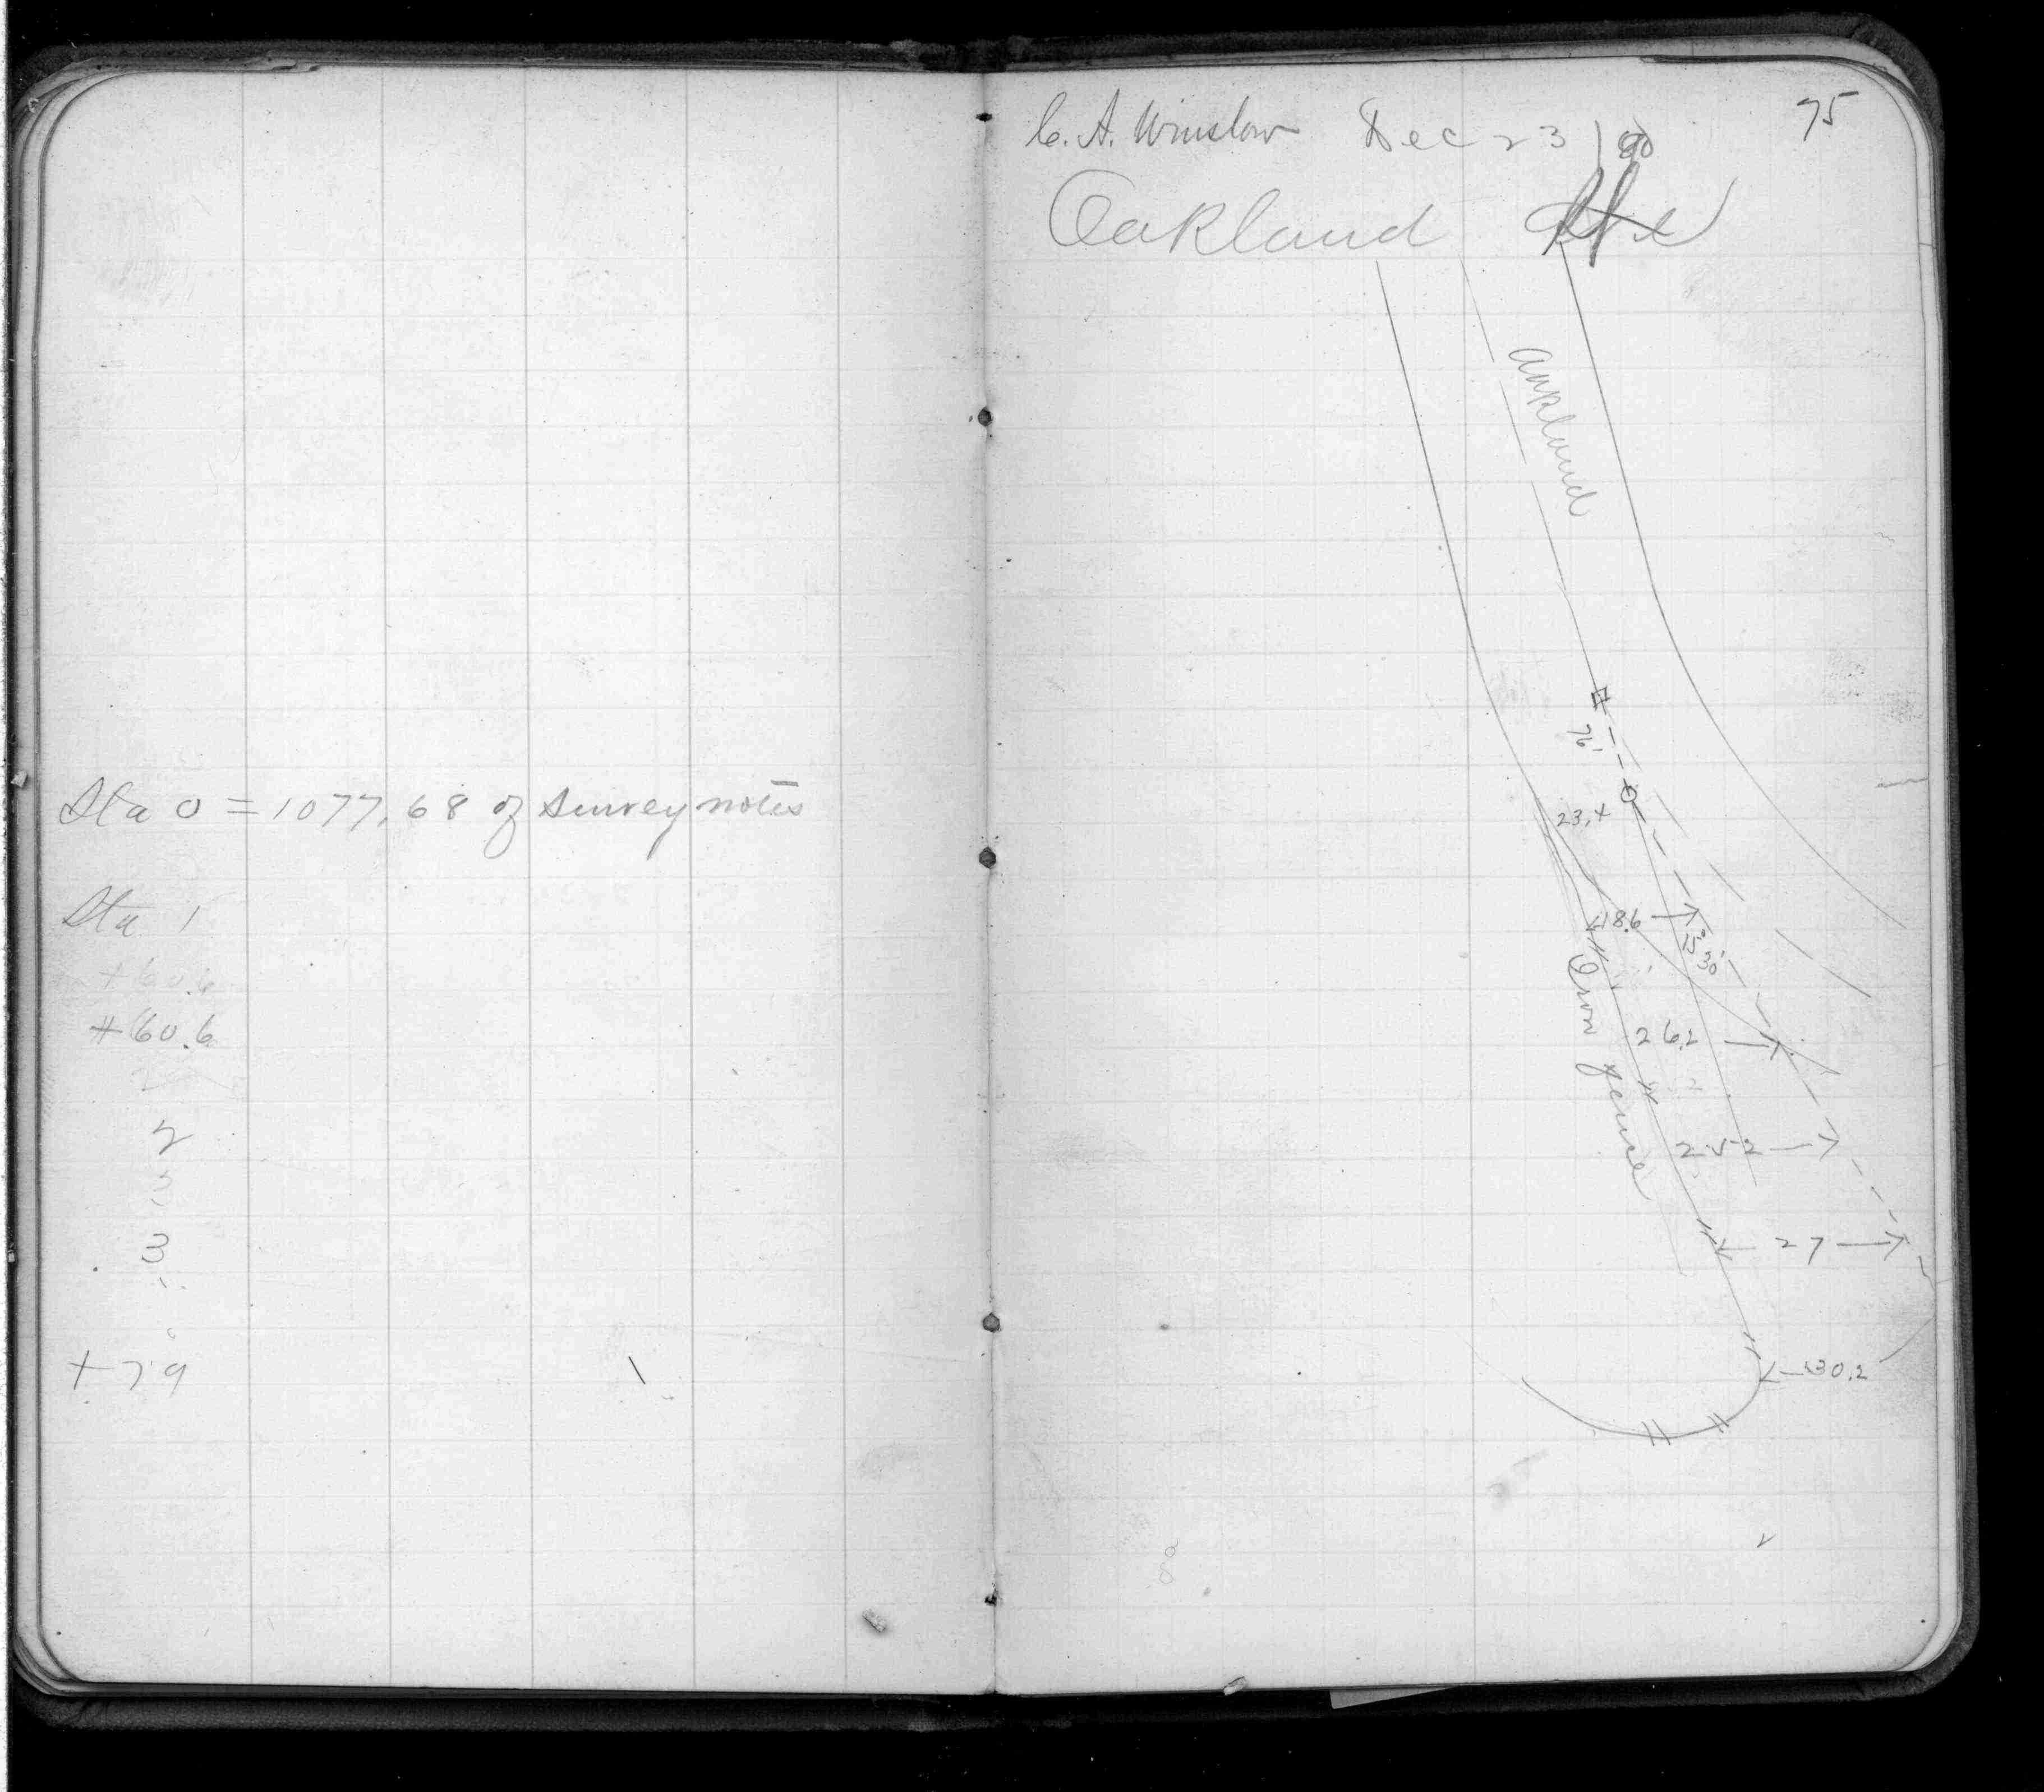 Sta 0 = 1077.68 of survey notes
Sta 1
+60.6
+60.6
2
3
3
+79
75
C. A. Winslow Dec 23
Oakland
Oakland
76'
23.4
18.6
15° 30'
Iron fence
26.2
25.2
27
30.2